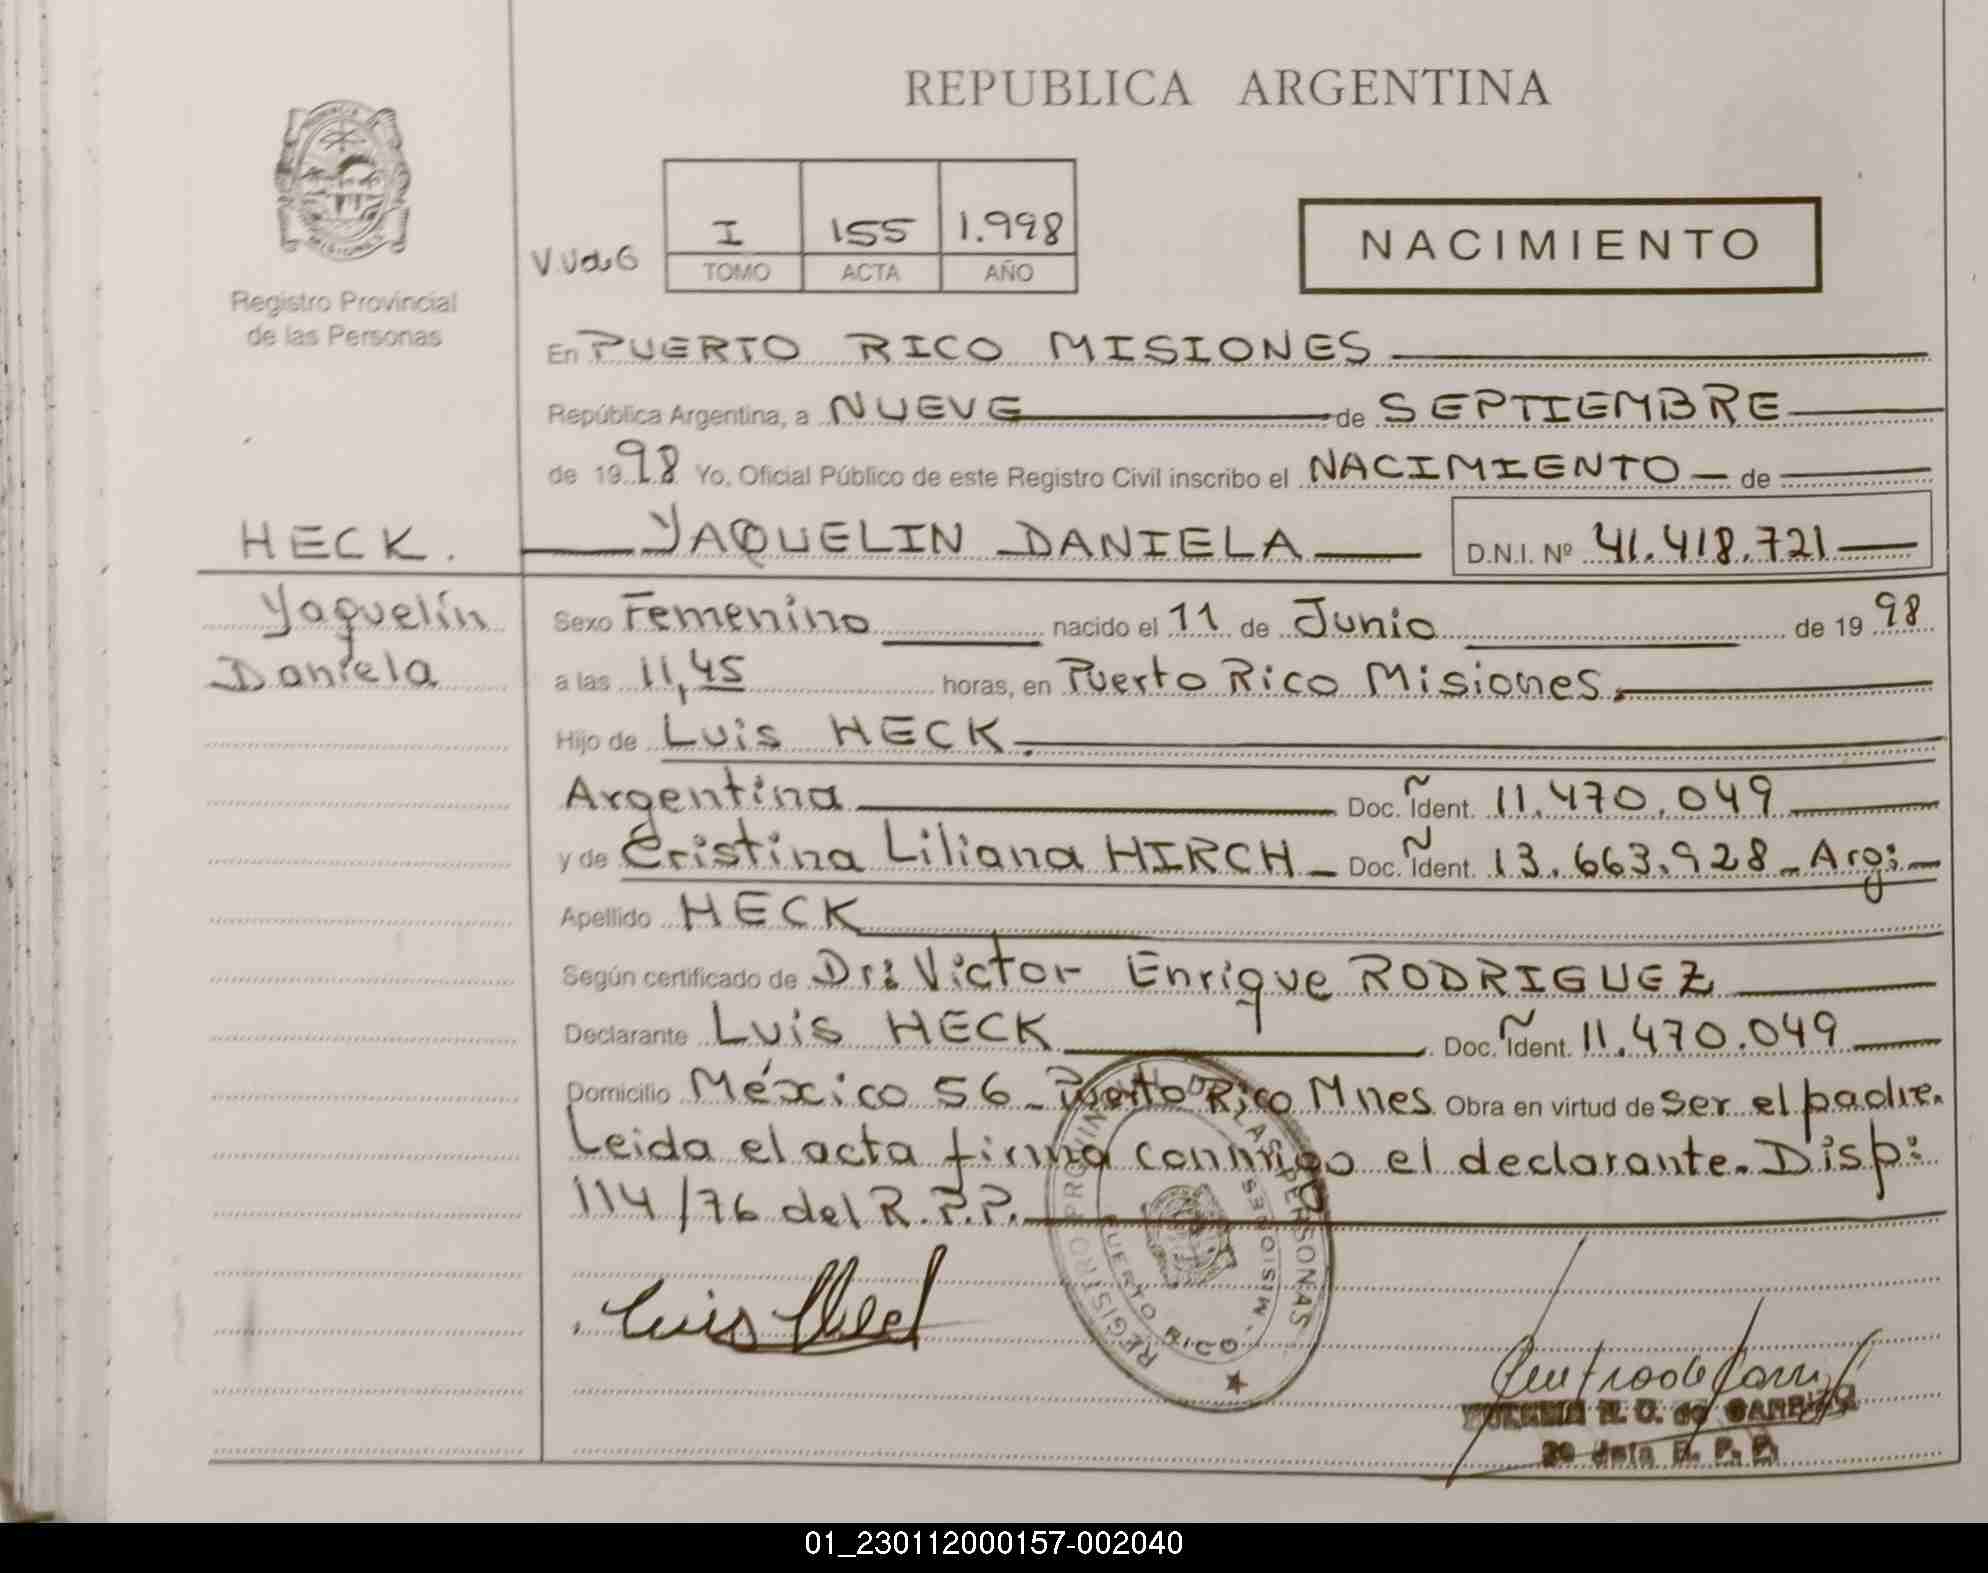 REPUBLICA ARGENTINA
Registro Provincial
de las Personas
I 155 1.998
TOMO ACTA AÑO
NACIMIENTO
En PUERTO RICO MISIONES
República Argentina, a NUEVE de SEPTIEMBRE
de 1998 Yo, Oficial Público de este Registro Civil inscribo el NACIMIENTO de
HECK. YAQUELIN DANIELA D.N.I. Nº 41.418.721
Yaquelín
Daniela
Sexo Femenino nacido el 11 de Junio de 1998
a las 11,45 horas, en Puerto Rico Misiones.
Hijo de Luis HECK.
Argentina Doc. Ident. 11.470.049
y de Cristina Liliana HIRCH Doc. Ident. 13.663.928 - Arg:
Apellido HECK
Según certificado de Dr: Victor Enrique RODRIGUEZ
Declarante Luis HECK Doc. Ident. 11.470.049
Domicilio México 56 - Puerto Rico Mnes Obra en virtud de ser el padre.
Leida el acta firma conmigo el declarante. Disp:
114/76 del R.P.P.
REGISTRO PROVINCIAL DE LAS PERSONAS
PUERTO RICO - MISIONES
Luis Heck
01_230112000157-002040